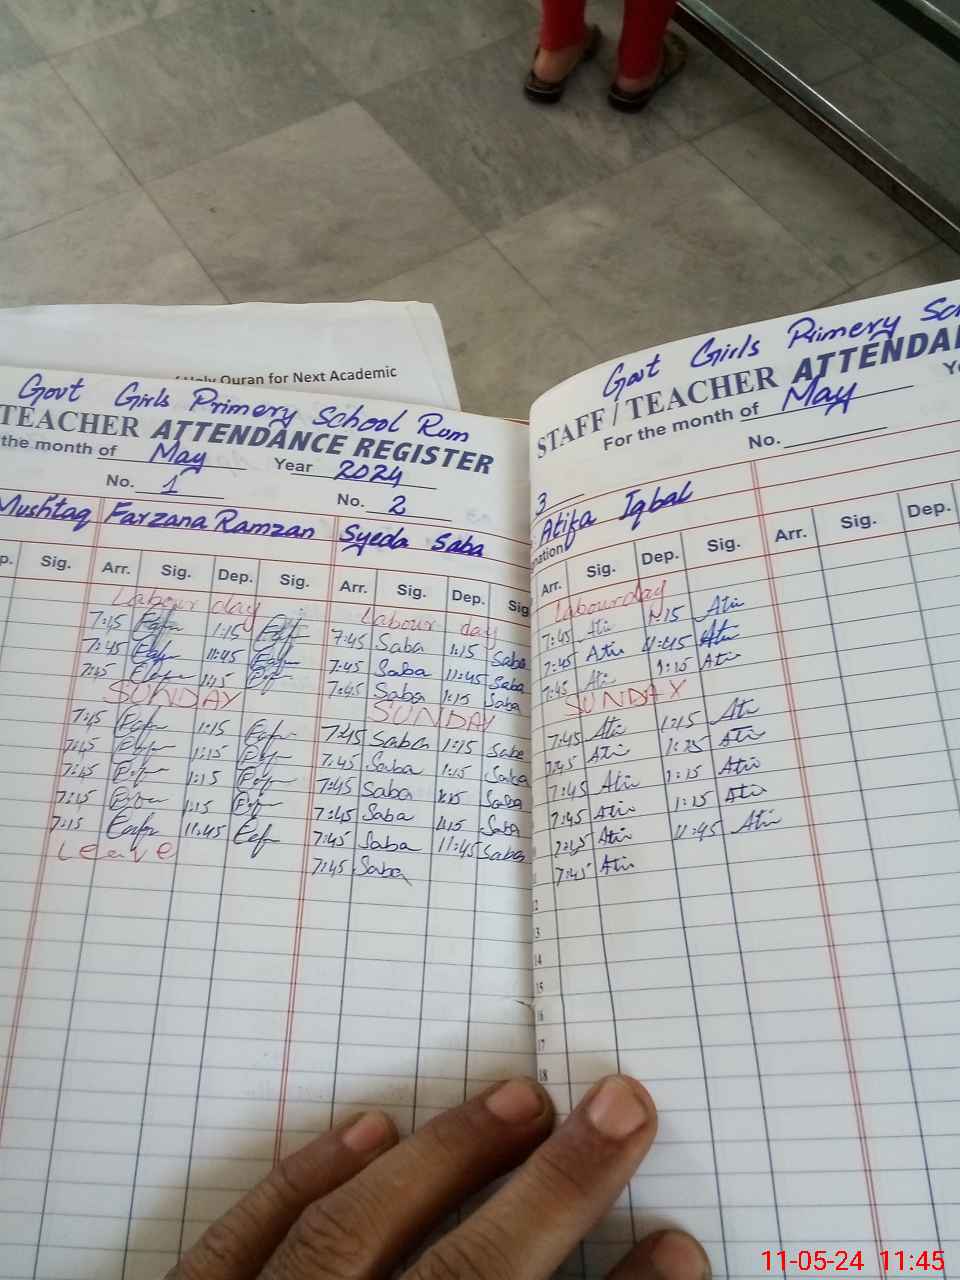 Holy Quran for Next Academic
Govt Girls Primery School Rum
TEACHER ATTENDANCE REGISTER
the month of May Year 2024
No. 1 No. 2
Mushtaq Farzana Ramzan Syeda Saba
p. Sig. Arr. Sig. Dep. Sig. Arr. Sig. Dep. Sig
Labour day Labour day
7:45 1:15 7:45 Saba 1:15 Saba
7:45 11:45 7:45 Saba 11:45 Saba
7:45 7:45 Saba 1:15 Saba
SUNDAY SUNDAY
7:45 1:15 7:45 Saba 1:15 Saba
7:45 1:15 7:45 Saba 1:15 Saba
7:45 1:15 7:45 Saba 1:15 Saba
7:45 1:15 7:45 Saba 1:15 Saba
11:45 7:45 Saba 11:45 Saba
Leave 7:45 Saba
Govt Girls Primery Sc
STAFF / TEACHER ATTENDA
For the month of May Ye
3 No.
nation Atifa Iqbal
Arr. Sig. Dep. Sig. Arr. Sig. Dep.
Labour day
7:45 Ati 1:15 Ati
7:45 Ati 11:45 Ati
7:45 Ati 1:15 Ati
SUNDAY
7:45 Ati 1:15 Ati
7:45 Ati Ati
7:45 Ati 1:15 Ati
7:45 Ati 1:15 Ati
7:45 Ati 11:45 Ati
7:45 Ati
12
13
14
15
16
17
18
11-05-24 11:45